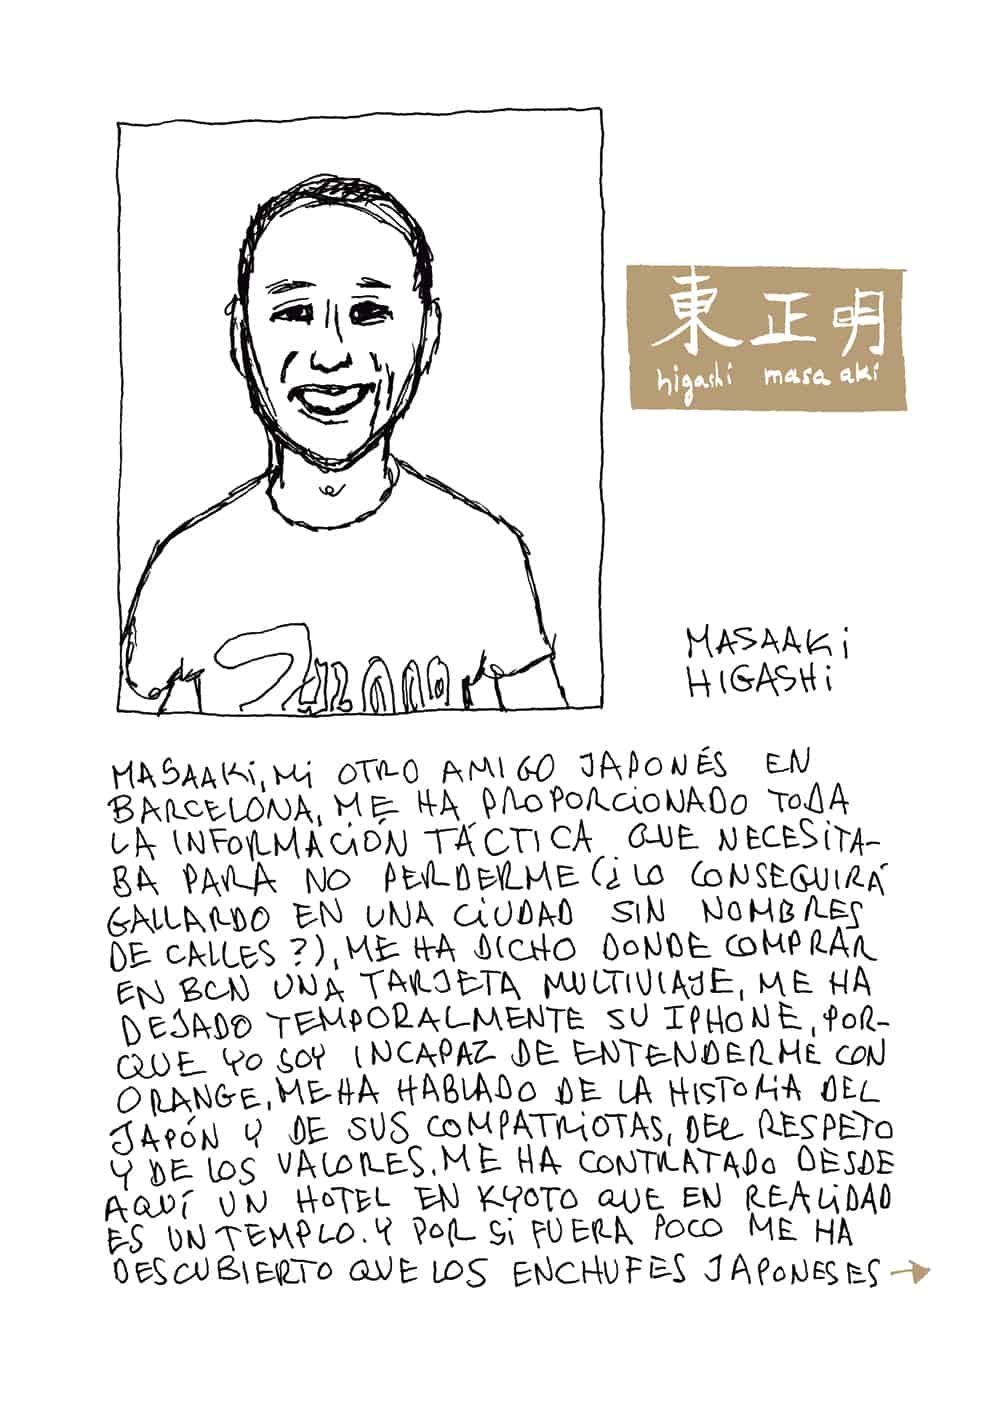 東 正明
higashi masa aki
MASAAKi
HIGASHi
MASAAKi, Mi OTRO AMIGO JAPONÉS EN
BARCELONA, ME HA PROPORCiONADO TODA
LA INFORMACiÓN TÁCTICA QUE NECESiTA-
BA PARA NO PERDERME (¿LO CONSEGUIRÁ
GALLARDO EN UNA CiUDAD SIN NOMBRES
DE CALLES?), ME HA DICHO DONDE COMPRAR
EN BCN UNA TARJETA MULTIVIAJE, ME HA
DEJADO TEMPORALMENTE SU IPHONE, POR-
QUE YO SOY INCAPAZ DE ENTENDERME CON
ORANGE, ME HA HABLADO DE LA HISTORiA DEL
JAPÓN Y DE SUS COMPATRiOTAS, DEL RESPETO
Y DE LOS VALORES. ME HA CONTRATADO DESDE
AQUÍ UN HOTEL EN KYOTO QUE EN REALiDAD
ES UN TEMPLO. Y POR Si FUERA POCO ME HA
DESCUBIERTO QUE LOS ENCHUFES JAPONESES →